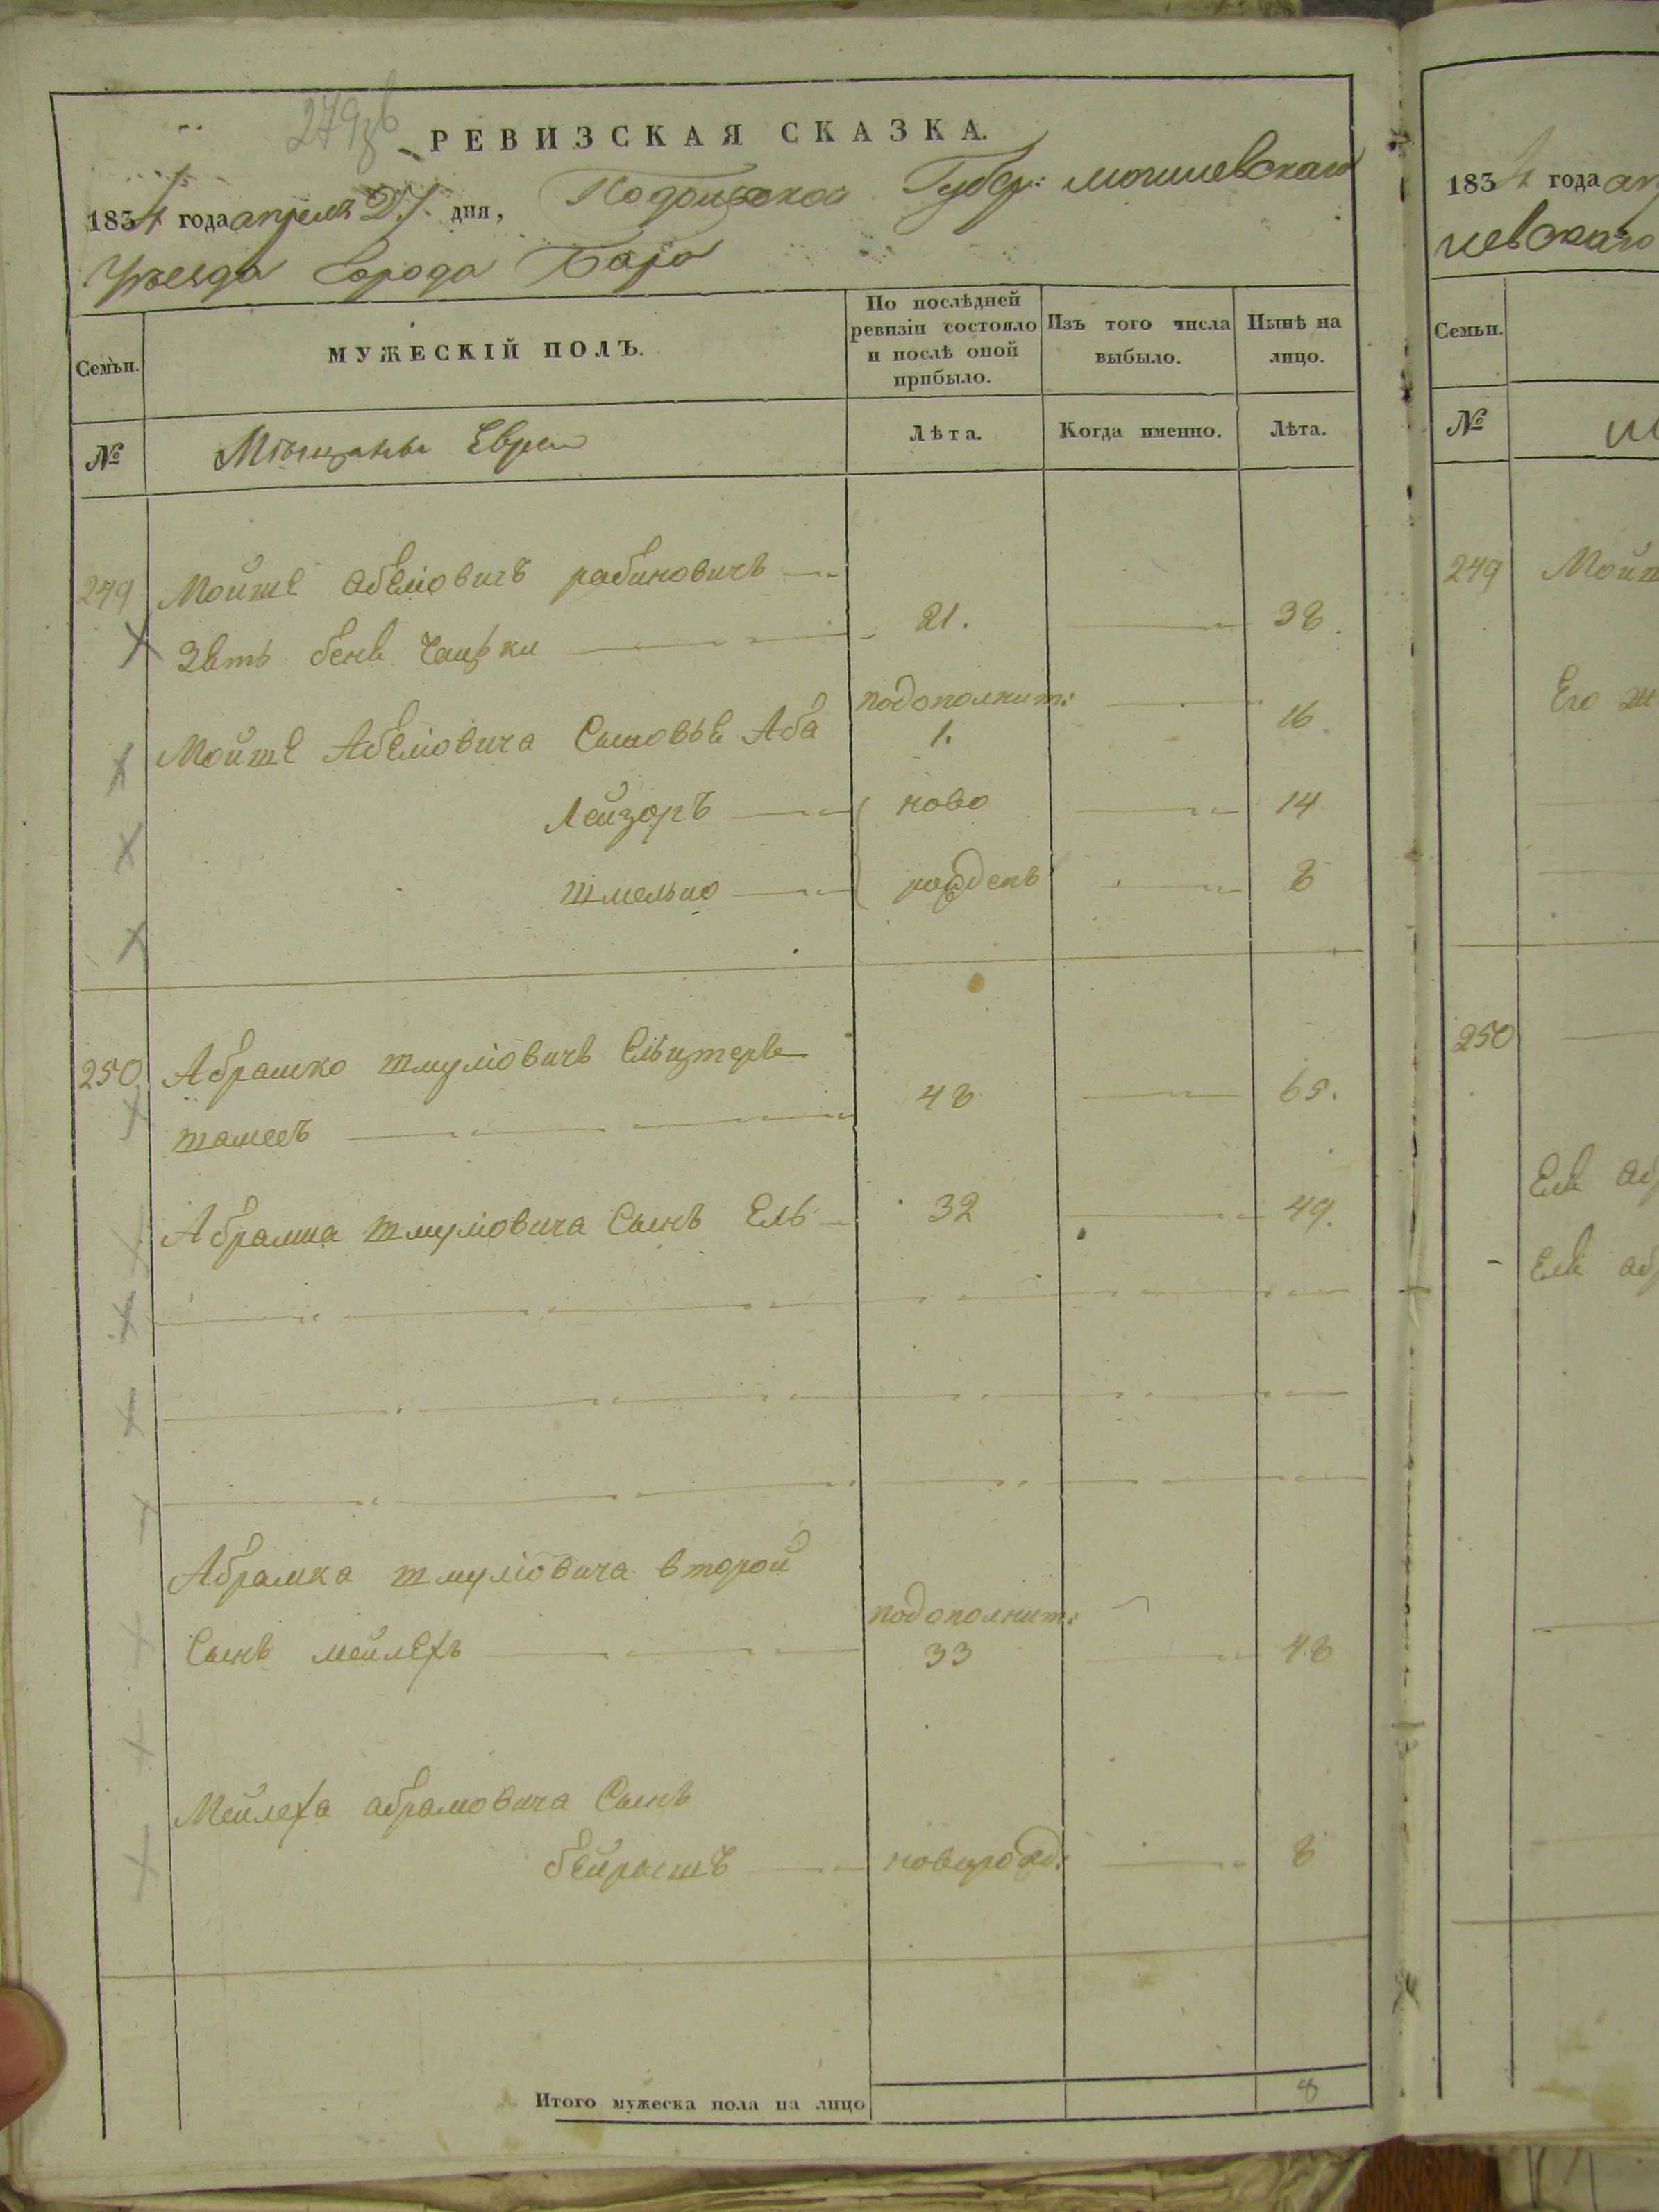 РЕВИЗСКАЯ СКАЗКА.
1834 года апреля дня, Подольской Губер: могилевскаго
Уѣзда Города Бара
Семьи.
МУЖЕСКІЙ ПОЛЪ.
По послѣдней ревизіи состояло и послѣ оной прибыло.
Изъ того числа выбыло.
Нынѣ на лицо.
№
Мѣщаны Евреи
Лѣта.
Когда именно.
Лѣта.
249 Мойше Абелiовичъ рабиновичъ
Зять 21. 38.
Мойше Абелiовича Сыновье Аба подополнит: 1. 16
Лейзоръ ново 14
Шмельио рожденъ 8
250 Абрамко Шмулiовичъ
48 65.
Абрамка Шмулiовича Сынъ Ель 32 49.
Абрамка шмулiовича второй
Сынъ мейлехъ подополнит: 33 48
Мейлеха абрамовича Сынъ
новорожд: 8
Итого мужеска пола на лицо 8
1834 года
Семьи.
№
249
250